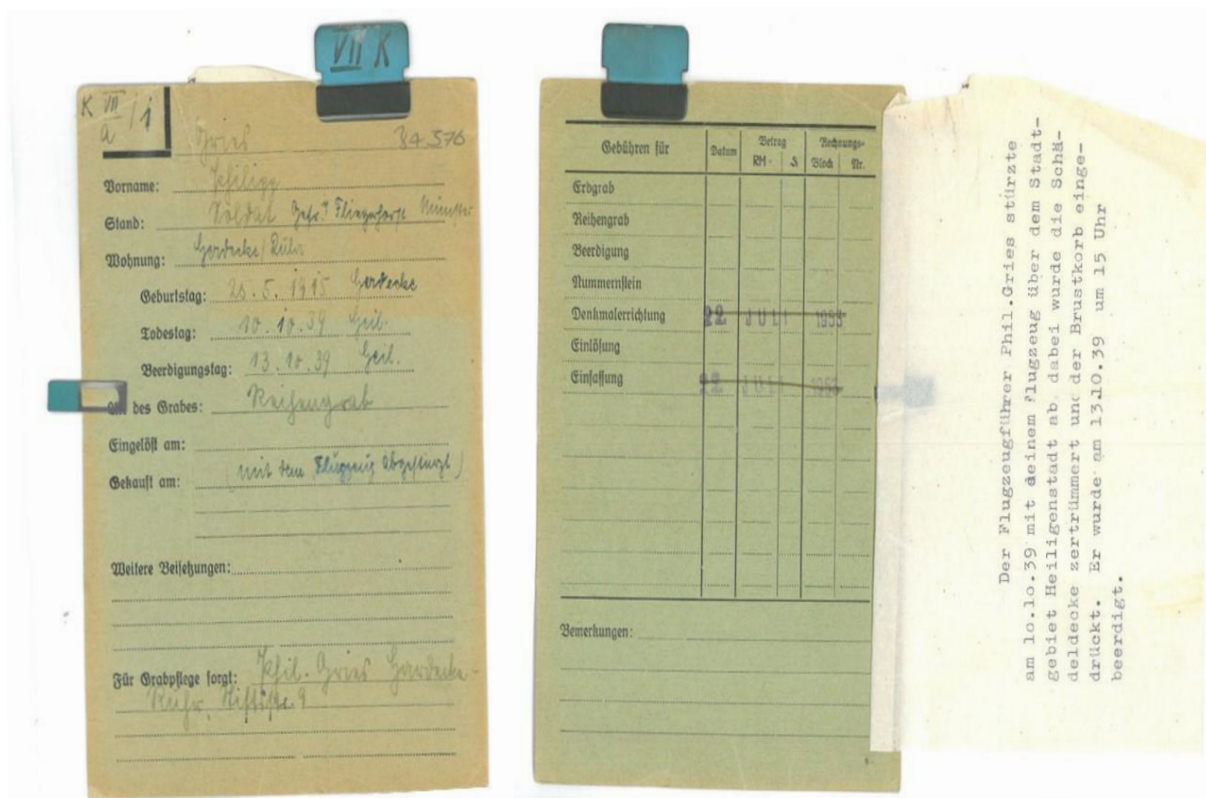 VII K
K VII
a / 1
Gries 84.576
Vorname: Philipp
Stand: Soldat Gefr. Fliegerhorst Münster
Wohnung: Herdecke/Ruhr
Geburtstag: 1915 Herdecke
Todestag: 10.10.39 Heil.
Beerdigungstag: 13.10.39 Heil.
des Grabes: Reihengrab
Eingelöst am:
Gekauft am: (mit dem Flugzeug abgestürzt)
Weitere Beisetzungen:
Für Grabpflege sorgt: Phil. Gries Herdecke-
Ruhr, Stiftstr. 9
Gebühren für Datum Betrag Rechnungs-
RM Block Nr.
Erbgrab
Reihengrab
Beerdigung
Nummernstein
Denkmalerrichtung 22 JULI 1953
Einlösung
Einfassung 22 JULI 1953
Bemerkungen:
Der Flugzeugführer Phil.Gries stürzte
am 10.10.39 mit deinem Flugzeug über dem Stadt-
gebiet Heiligenstadt ab, dabei wurde die Schä-
deldecke zertrümmert und der Brustkorb einge-
drückt. Er wurde am 13.10.39 um 15 Uhr
beerdigt.